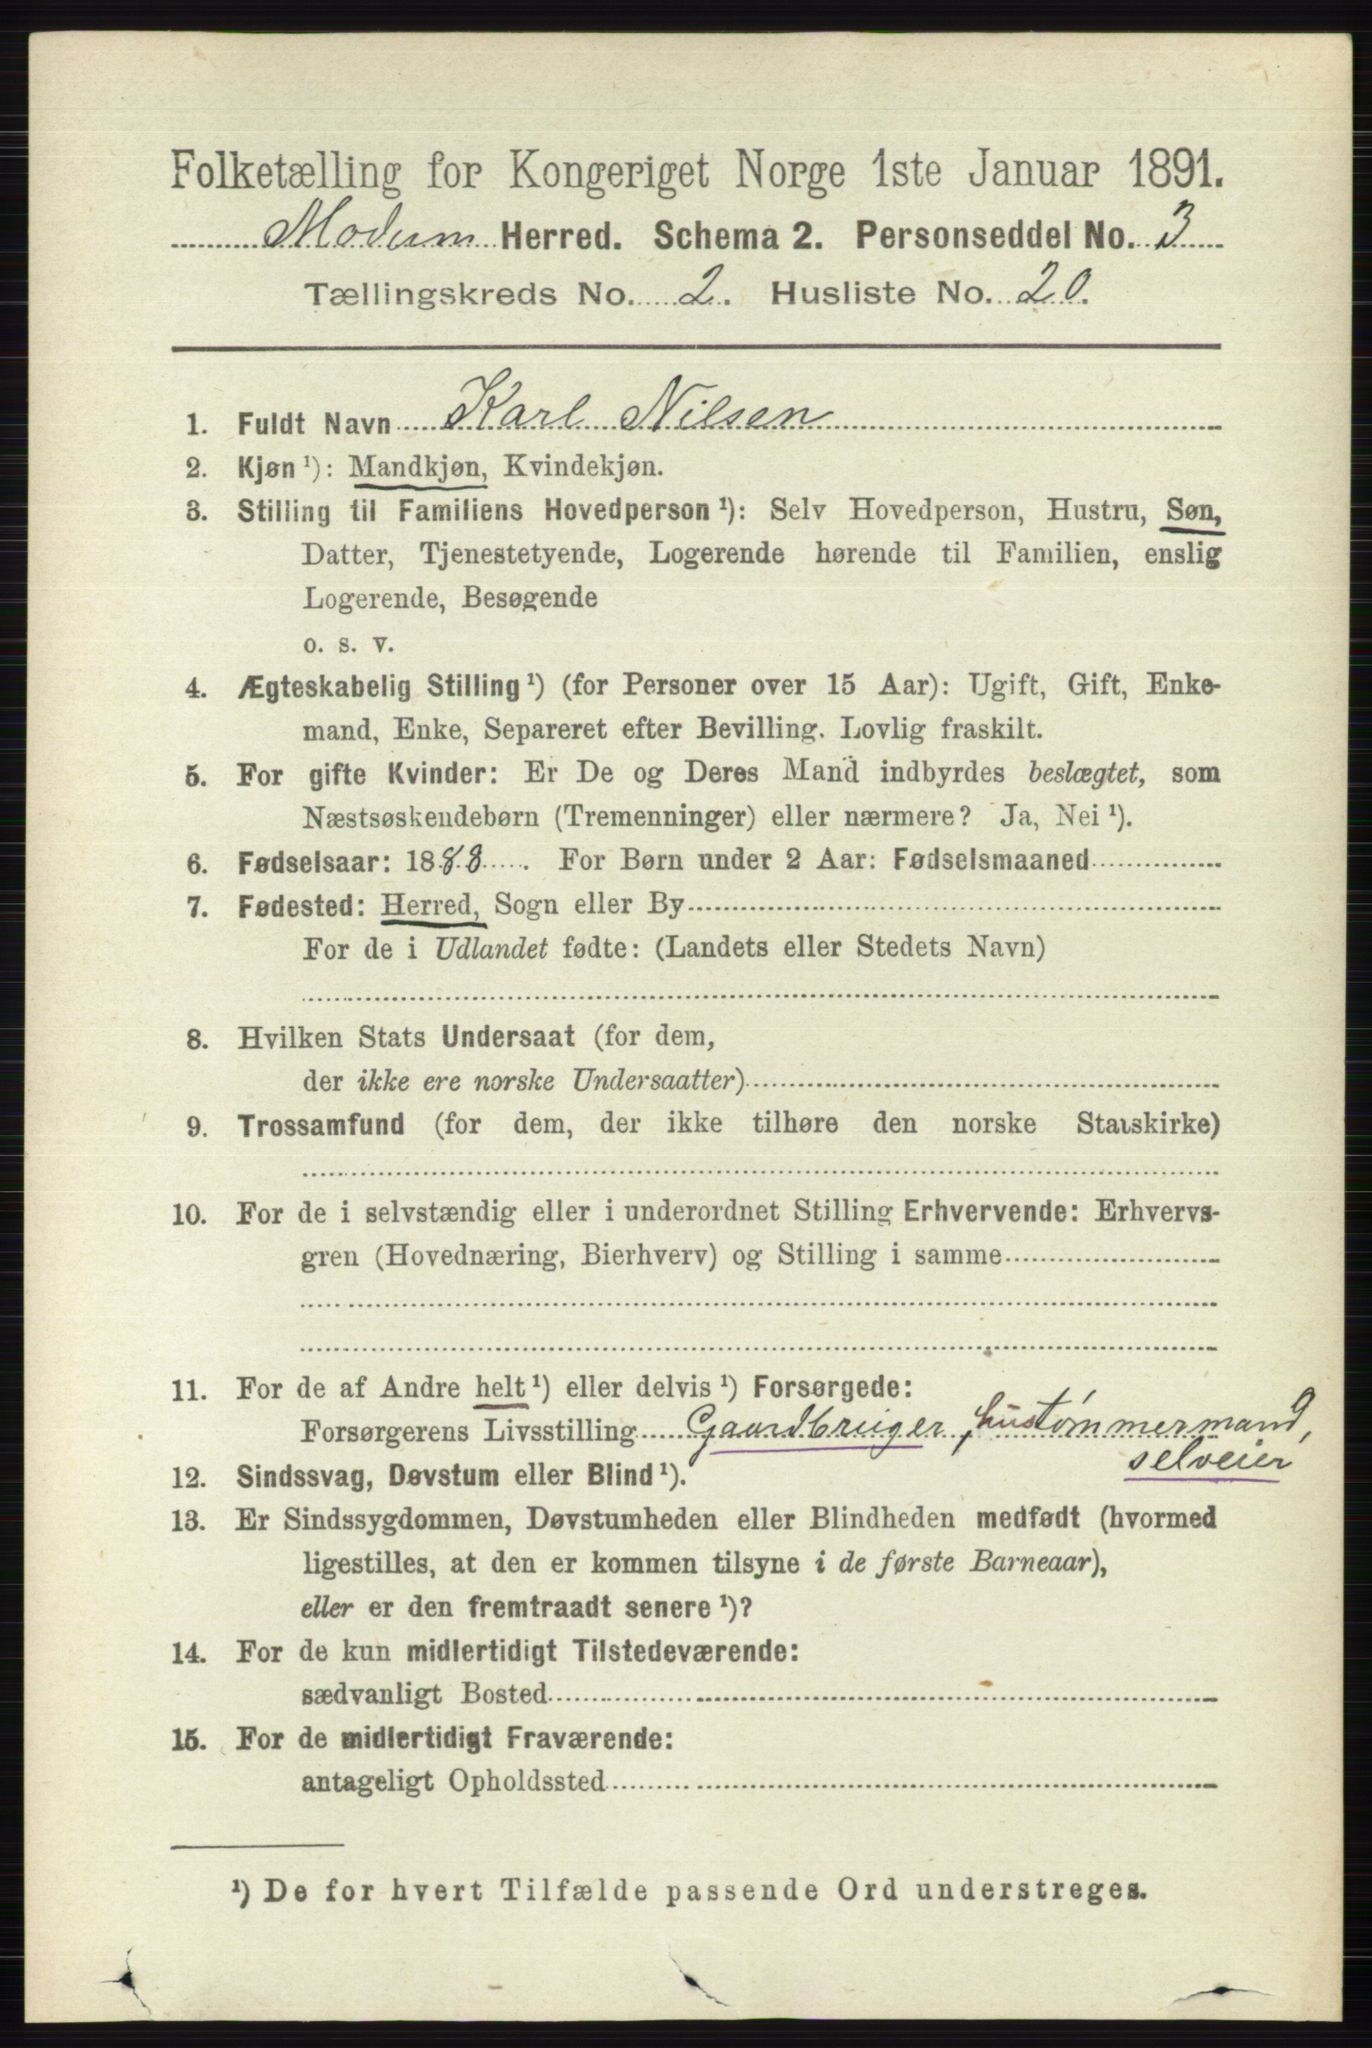 Folketælling for Kongeriget Norge 1ste Januar 1891.
Modum Herred. Schema 2. Personseddel No. 3
Tællingskreds No. 2. Husliste No. 20.
1. Fuldt Navn Karl Nilsen
2. Kjøn ¹): Mandkjøn, Kvindekjøn.
3. Stilling til Familiens Hovedperson ¹): Selv Hovedperson, Hustru, Søn,
Datter, Tjenestetyende, Logerende hørende til Familien, enslig
Logerende, Besøgende
o. s. v.
4. Ægteskabelig Stilling ¹) (for Personer over 15 Aar): Ugift, Gift, Enke-
mand, Enke, Separeret efter Bevilling. Lovlig fraskilt.
5. For gifte Kvinder: Er De og Deres Mand indbyrdes beslægtet, som
Næstsøskendebørn (Tremenninger) eller nærmere? Ja, Nei ¹).
6. Fødselsaar: 1888. For Børn under 2 Aar: Fødselsmaaned
7. Fødested: Herred, Sogn eller By
For de i Udlandet fødte: (Landets eller Stedets Navn)
8. Hvilken Stats Undersaat (for dem,
der ikke ere norske Undersaatter)
9. Trossamfund (for dem, der ikke tilhøre den norske Statskirke)
10. For de i selvstændig eller i underordnet Stilling Erhvervende: Erhvervs-
gren (Hovednæring, Bierhverv) og Stilling i samme
11. For de af Andre helt ¹) eller delvis ¹) Forsørgede:
Forsørgerens Livsstilling Gaardbruger, hustømmermand,
selveier
12. Sindssvag, Døvstum eller Blind ¹).
13. Er Sindssygdommen, Døvstumheden eller Blindheden medfødt (hvormed
ligestilles, at den er kommen tilsyne i de første Barneaar),
eller er den fremtraadt senere ¹)?
14. For de kun midlertidigt Tilstedeværende:
sædvanligt Bosted
15. For de midlertidigt Fraværende:
antageligt Opholdssted
¹) De for hvert Tilfælde passende Ord understreges.